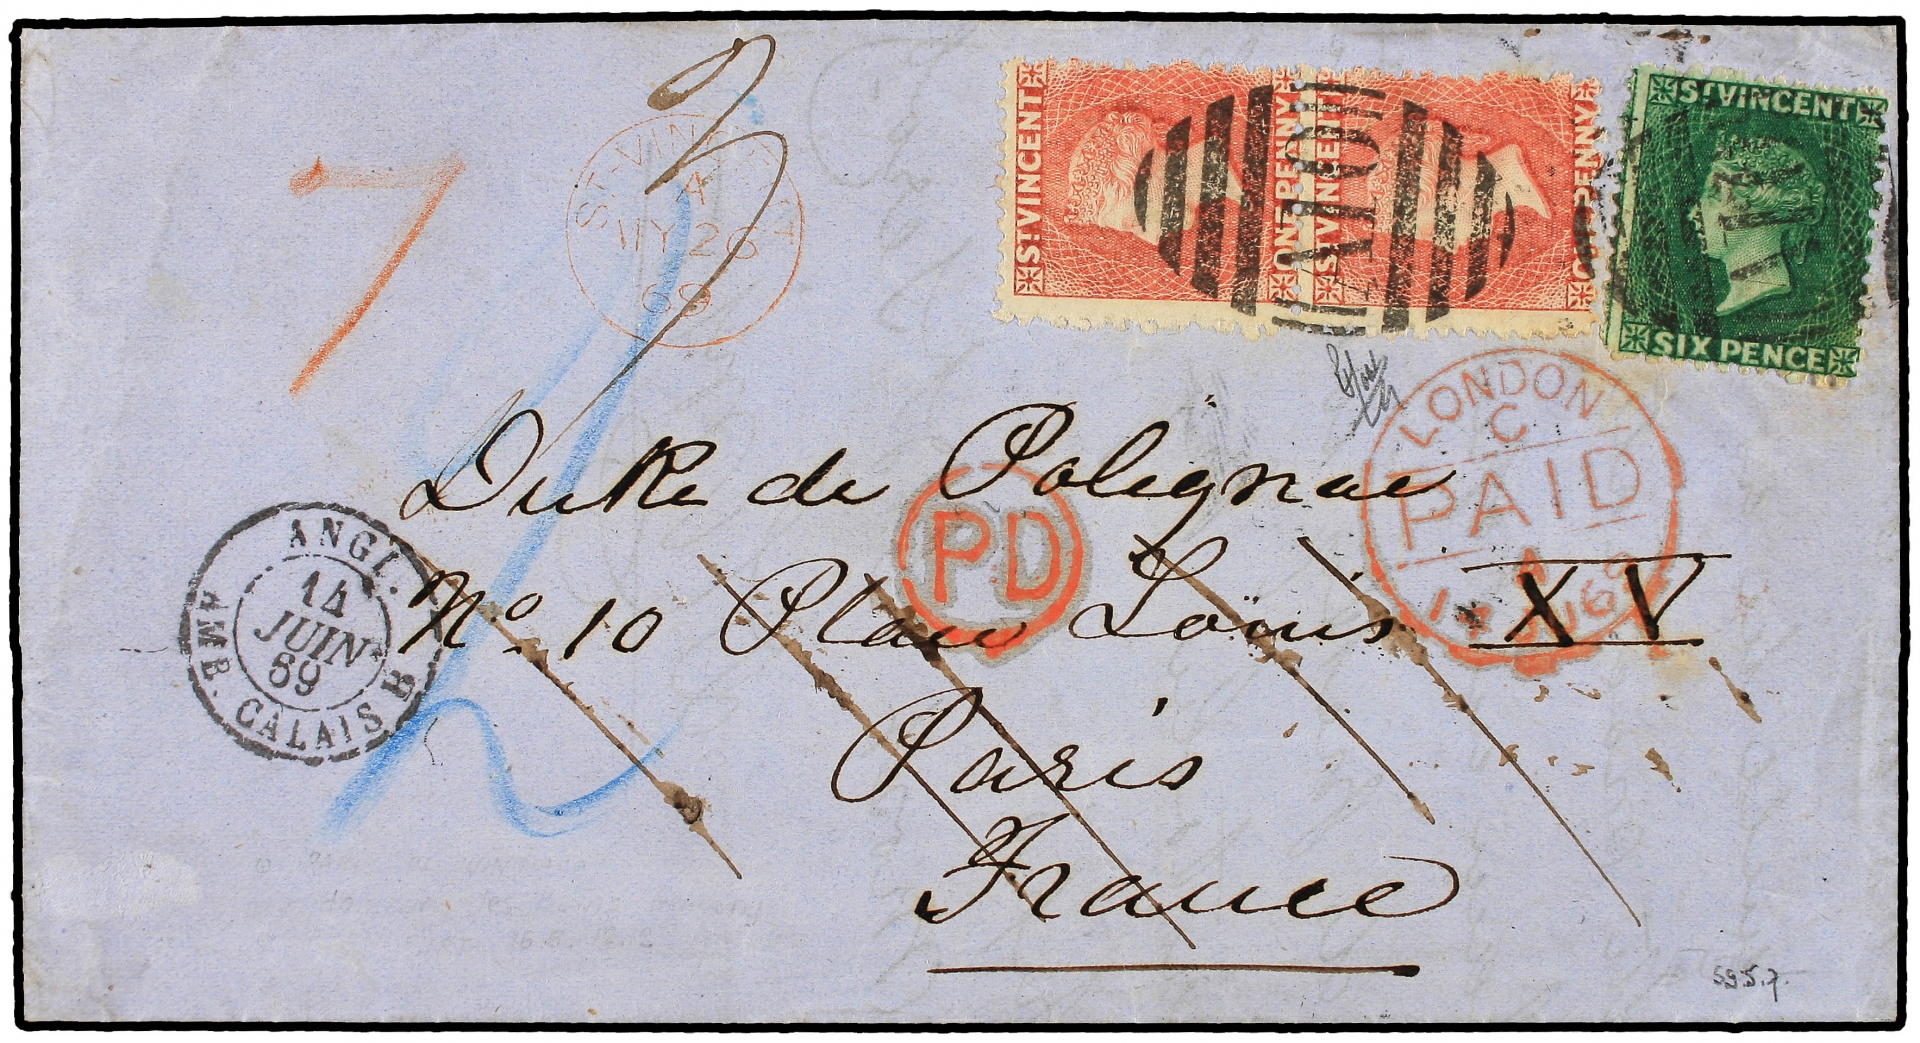 7
ST-VINCENT
A
MY 26
69
ST VINCENT
ONE PENNY
ST VINCENT
ONE PENNY
A10
ST VINCENT
SIX PENCE
LONDON
C
PAID
Duke de Polignac
PD
No 10 Place Louis XV
Paris
France
ANGL.
14
JUIN
69
AMB. CALAIS B
2
S.G.5.7.